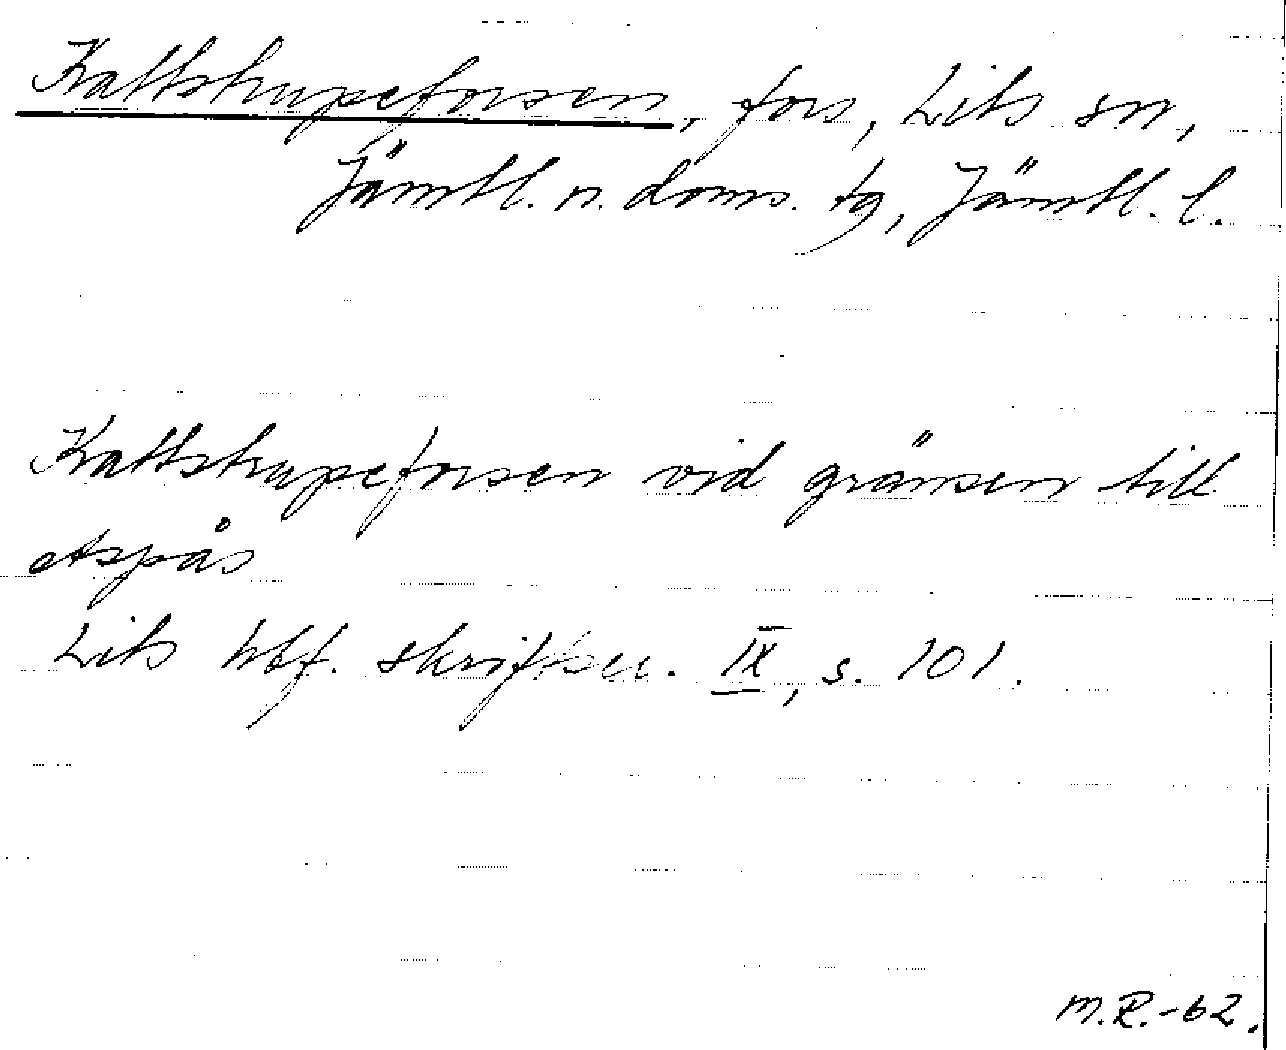 Kattstrupeforsen, fors, Lits sn,
Jämtl. n. doms. tg, Jämtl. l.
Kattstrupeforsen vid gränsen till
Aspås
Lits hbf. skriftser. IX, s. 101.
M.R.-62.